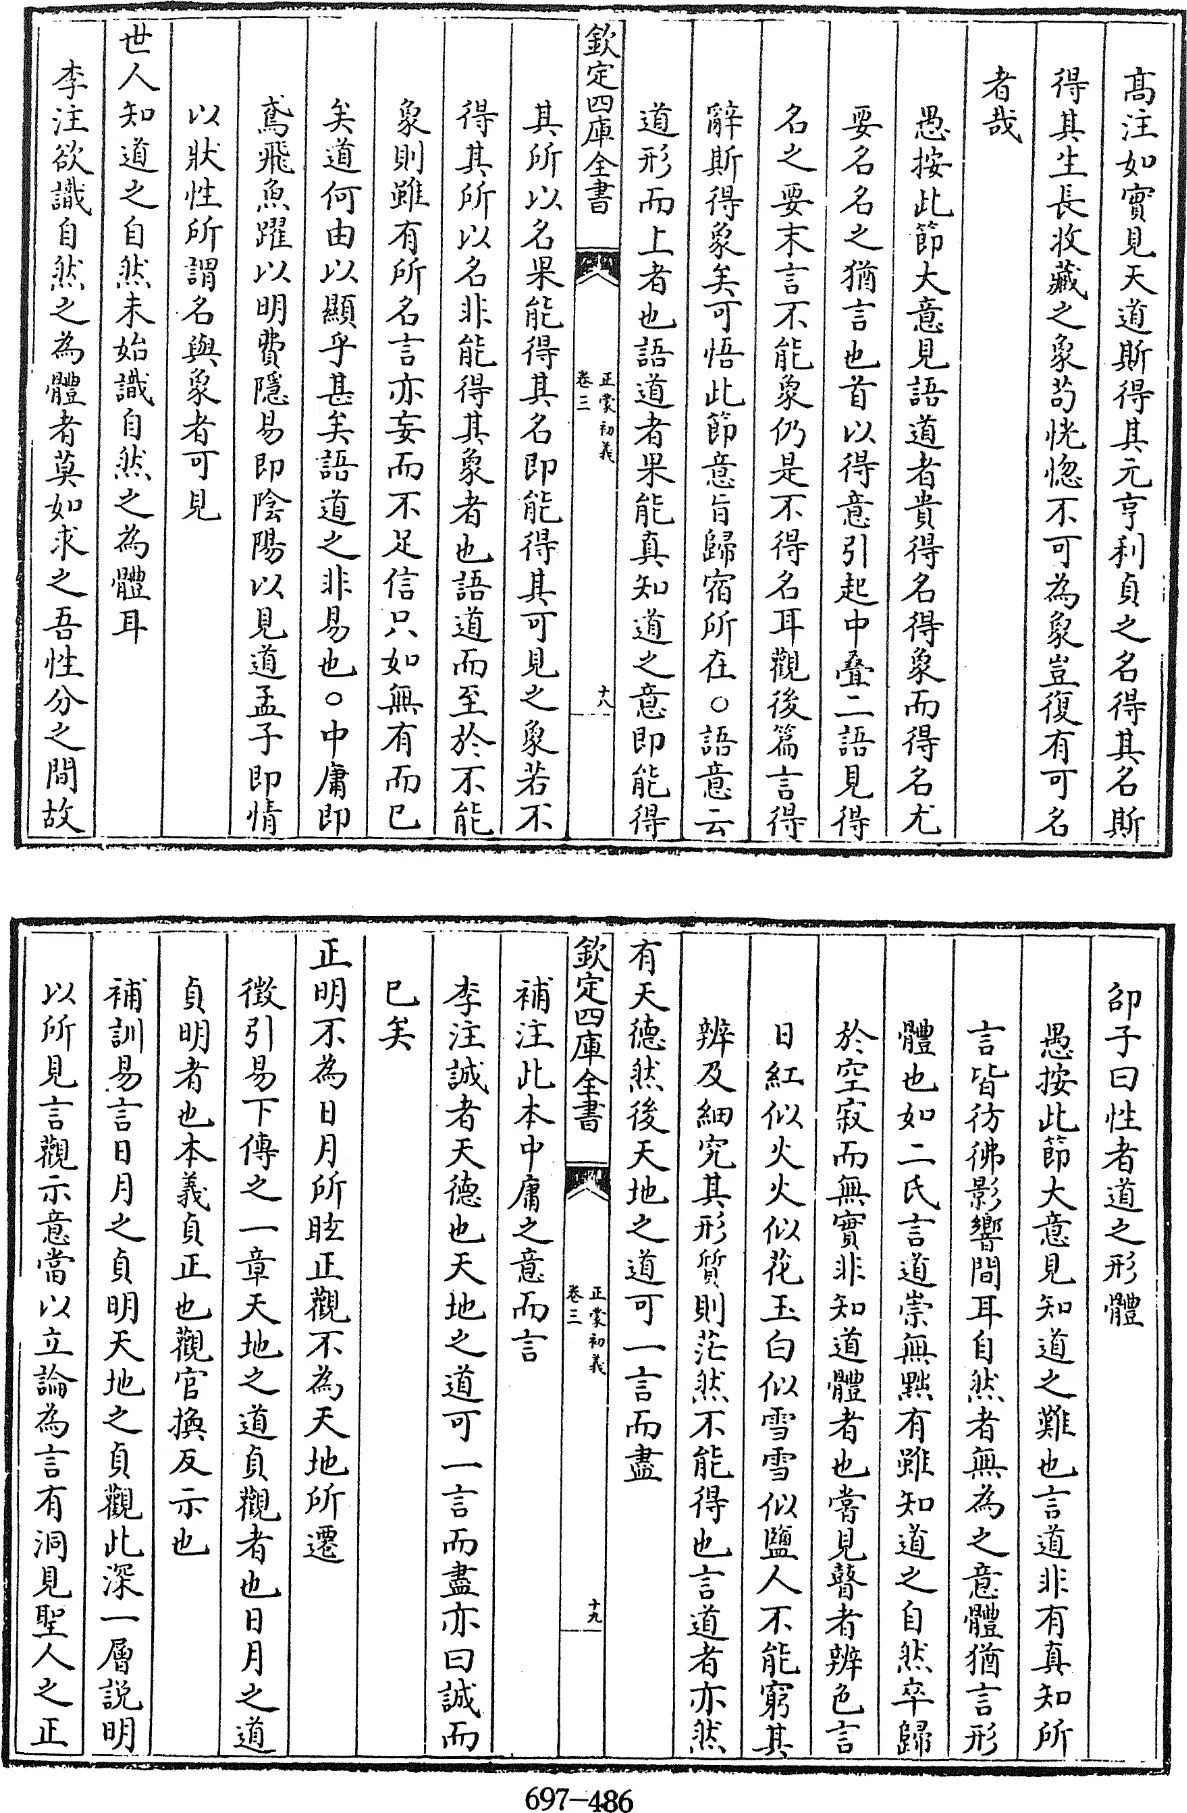 高注如實見天道斯得其元亨利貞之名得其名斯
得其生長收藏之象苟恍惚不可為象豈復有可名
者哉
愚按此節大意見語道者貴得名得象而得名尤
要名名之猶言也首以得意引起中叠二語見得
名之要末言不能象仍是不得名耳觀後篇言得
辭斯得象矣可悟此節意旨歸宿所在○語意云
道形而上者也語道者果能真知道之意即能得
欽定四庫全書
正蒙初義
卷三
十八
其所以名果能得其名即能得其可見之象若不
得其所以名非能得其象者也語道而至於不能
象則雖有所名言亦妄而不足信只如無有而已
矣道何由以顯乎甚矣語道之非易也○中庸即
鳶飛魚躍以明費隱易即陰陽以見道孟子即情
以狀性所謂名與象者可見
世人知道之自然未始識自然之為體耳
李注欲識自然之為體者莫如求之吾性分之間故
邵子曰性者道之形體
愚按此節大意見知道之難也言道非有真知所
言皆彷彿影響間耳自然者無為之意體猶言形
體也如二氏言道崇無黜有雖知道之自然卒歸
於空寂而無實非知道體者也嘗見瞽者辨色言
日紅似火火似花玉白似雪雪似鹽人不能窮其
辨及細究其形質則茫然不能得也言道者亦然
有天德然後天地之道可一言而盡
欽定四庫全書
正蒙初義
卷三
十九
補注此本中庸之意而言
李注誠者天德也天地之道可一言而盡亦曰誠而
已矣
正明不為日月所眩正觀不為天地所遷
徵引易下傳之一章天地之道貞觀者也日月之道
貞明者也本義貞正也觀官換反示也
補訓易言日月之貞明天地之貞觀此深一層說明
以所見言觀示意當以立論為言有洞見聖人之正
697-486